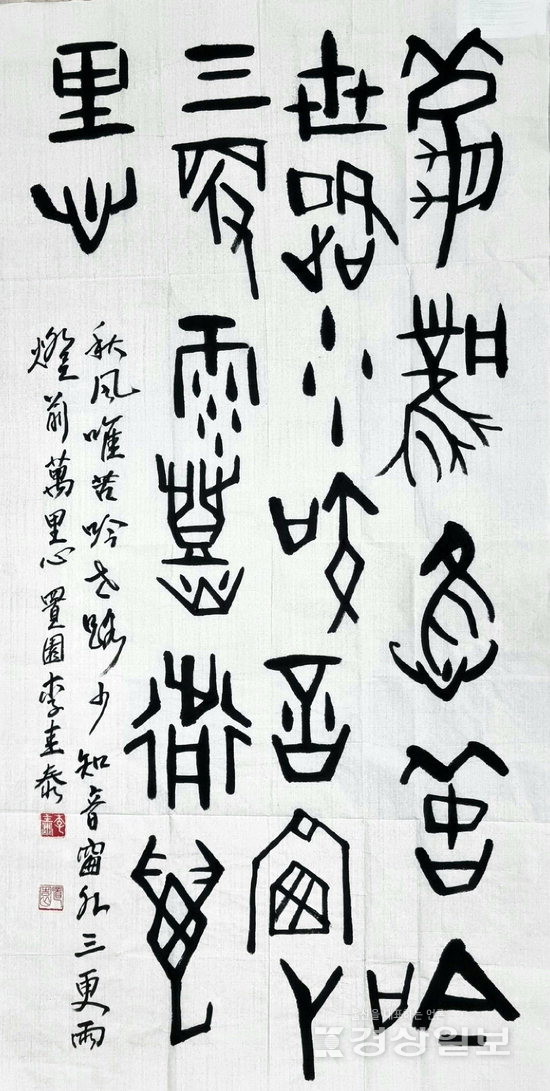 秋風唯苦吟
世路少知音窗外
三更雨燈前萬
里心
秋風唯苦吟世路少知音窗外三更雨
燈前萬里心 置園李圭泰
경상일보